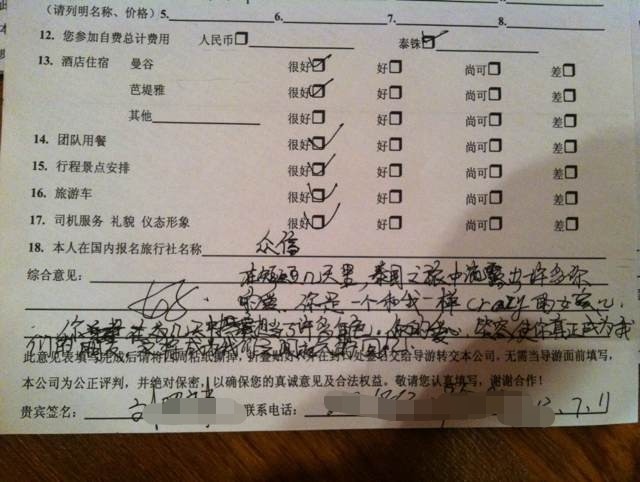 (请列明名称、价格) 5. 6. 7. 8.
12. 您参加自费总计费用 人民币□ 泰铢□
13. 酒店住宿 曼谷 很好□ 好□ 尚可□ 差□
芭堤雅 很好□ 好□ 尚可□ 差□
其他 很好□ 好□ 尚可□ 差□
14. 团队用餐 很好□ 好□ 尚可□ 差□
15. 行程景点安排 很好□ 好□ 尚可□ 差□
16. 旅游车 很好□ 好□ 尚可□ 差□
17. 司机服务 礼貌 仪态形象 很好□ 好□ 尚可□ 差□
18. 本人在国内报名旅行社名称 众信
综合意见: 在短短几天里,泰国之旅中流露出许多你
的爱。你是一个和我一样 crazy 的女孩儿。
你 在这几天中 担当了许多 你的爱心 使你真正成为我
们的
此意见表填写完成后请将四周粘纸撕掉, 交给导游转交本公司,无需当导游面前填写,
本公司为公正评判,并绝对保密,以确保您的真诚意见及合法权益。敬请您认真填写,谢谢合作!
贵宾签名: 联系电话: 7.11